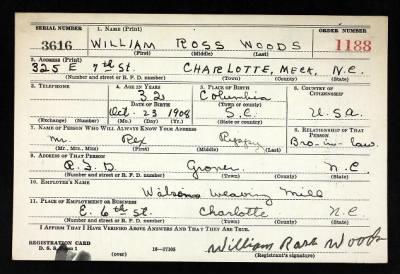 SERIAL NUMBER 1. NAME (Print) ORDER NUMBER
3616 WILLIAM ROSS WOODS 1188
(First) (Middle) (Last)
2. ADDRESS (Print)
325 E 7th St. CHARLOTTE, MECK, N.C.
(Number and street or R. F. D. number) (Town) (County) (State)
3. TELEPHONE 4. AGE IN YEARS 5. PLACE OF BIRTH 6. COUNTRY OF CITIZENSHIP
32 Columbia
DATE OF BIRTH (Town or county)
Oct. 23 1908 S.C. U.S.A
(Exchange) (Number) (Mo.) (Day) (Yr.) (State or country)
7. NAME OF PERSON WHO WILL ALWAYS KNOW YOUR ADDRESS 8. RELATIONSHIP OF THAT PERSON
Mr. Rex Bro-in-law.
(Mr., Mrs., Miss) (First) (Middle) (Last)
9. ADDRESS OF THAT PERSON
R.F.D. Grover N.C.
(Number and street or R. F. D. number) (Town) (County) (State)
10. EMPLOYER'S NAME
Weaving Mill
11. PLACE OF EMPLOYMENT OR BUSINESS
E. 6th St. Charlotte N.C.
(Number and street or R. F. D. number) (Town) (County) (State)
I AFFIRM THAT I HAVE VERIFIED ABOVE ANSWERS AND THAT THEY ARE TRUE.
REGISTRATION CARD
D. S. S. Form 1 16-17105 William Ross Woods
(Registrant's signature)